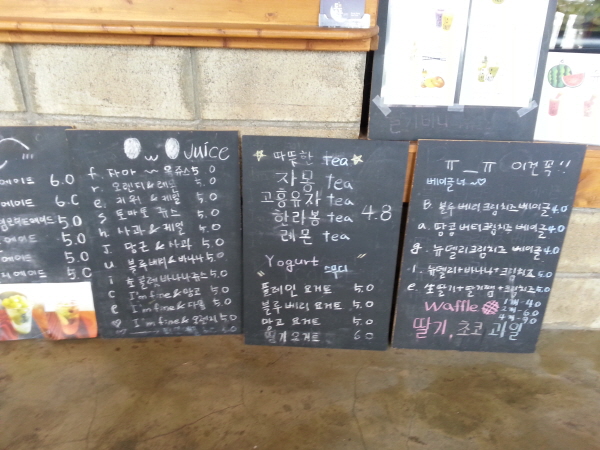 에이드 6.0
에이드 6.0
5.0
에이드 5.0
에이드 5.0
Juice
f. 5.0
r. 오렌지&레몬 5.0
e. 키위 & 케일 5.0
s. 토마토 쥬스 5.0
h. 사과 & 케일 5.0
J. 당근 & 사과 5.0
u. 블루베리&바나나 5.0
i. 초콜렛바나나쥬스 5.0
c. I'm fine&망고 5.0
e. I'm fine&자몽 5.0
♡ I'm fine&오렌지 5.0
☆ 따뜻한 tea ☆
자몽 tea
고흥유자 tea
한라봉 tea 4.8
레몬 tea
Yogurt
플레인 요거트 5.0
블루베리 요거트 5.0
망고 요거트 5.0
딸기 요거트 6.0
ㅠ_ㅠ 이건 꼭!!
베이글녀~♡
B. 블루베리크림치즈베이글 4.0
a. 땅콩버터크림치즈 베이글 4.0
g. 뉴델리크림치즈 베이글 4.0
l. 뉴텔라+바나나+크림치즈 5.0
e. 생딸기+딸기잼+크림치즈 5.0
Waffle 1개-4.0
2개-6.0
3개-9.0
딸기, 초코 과일